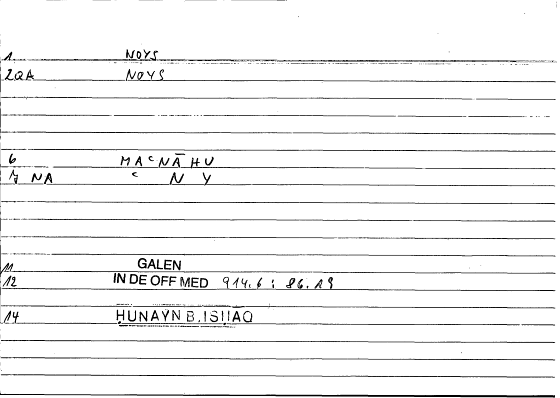 1 NOYS
2QA NOYS
6 MAʿNĀHU
7 NA ʿ N Y
11 GALEN
12 IN DE OFF MED 914.6 : 86.19
14 ḤUNAYN B.ISḤĀQ